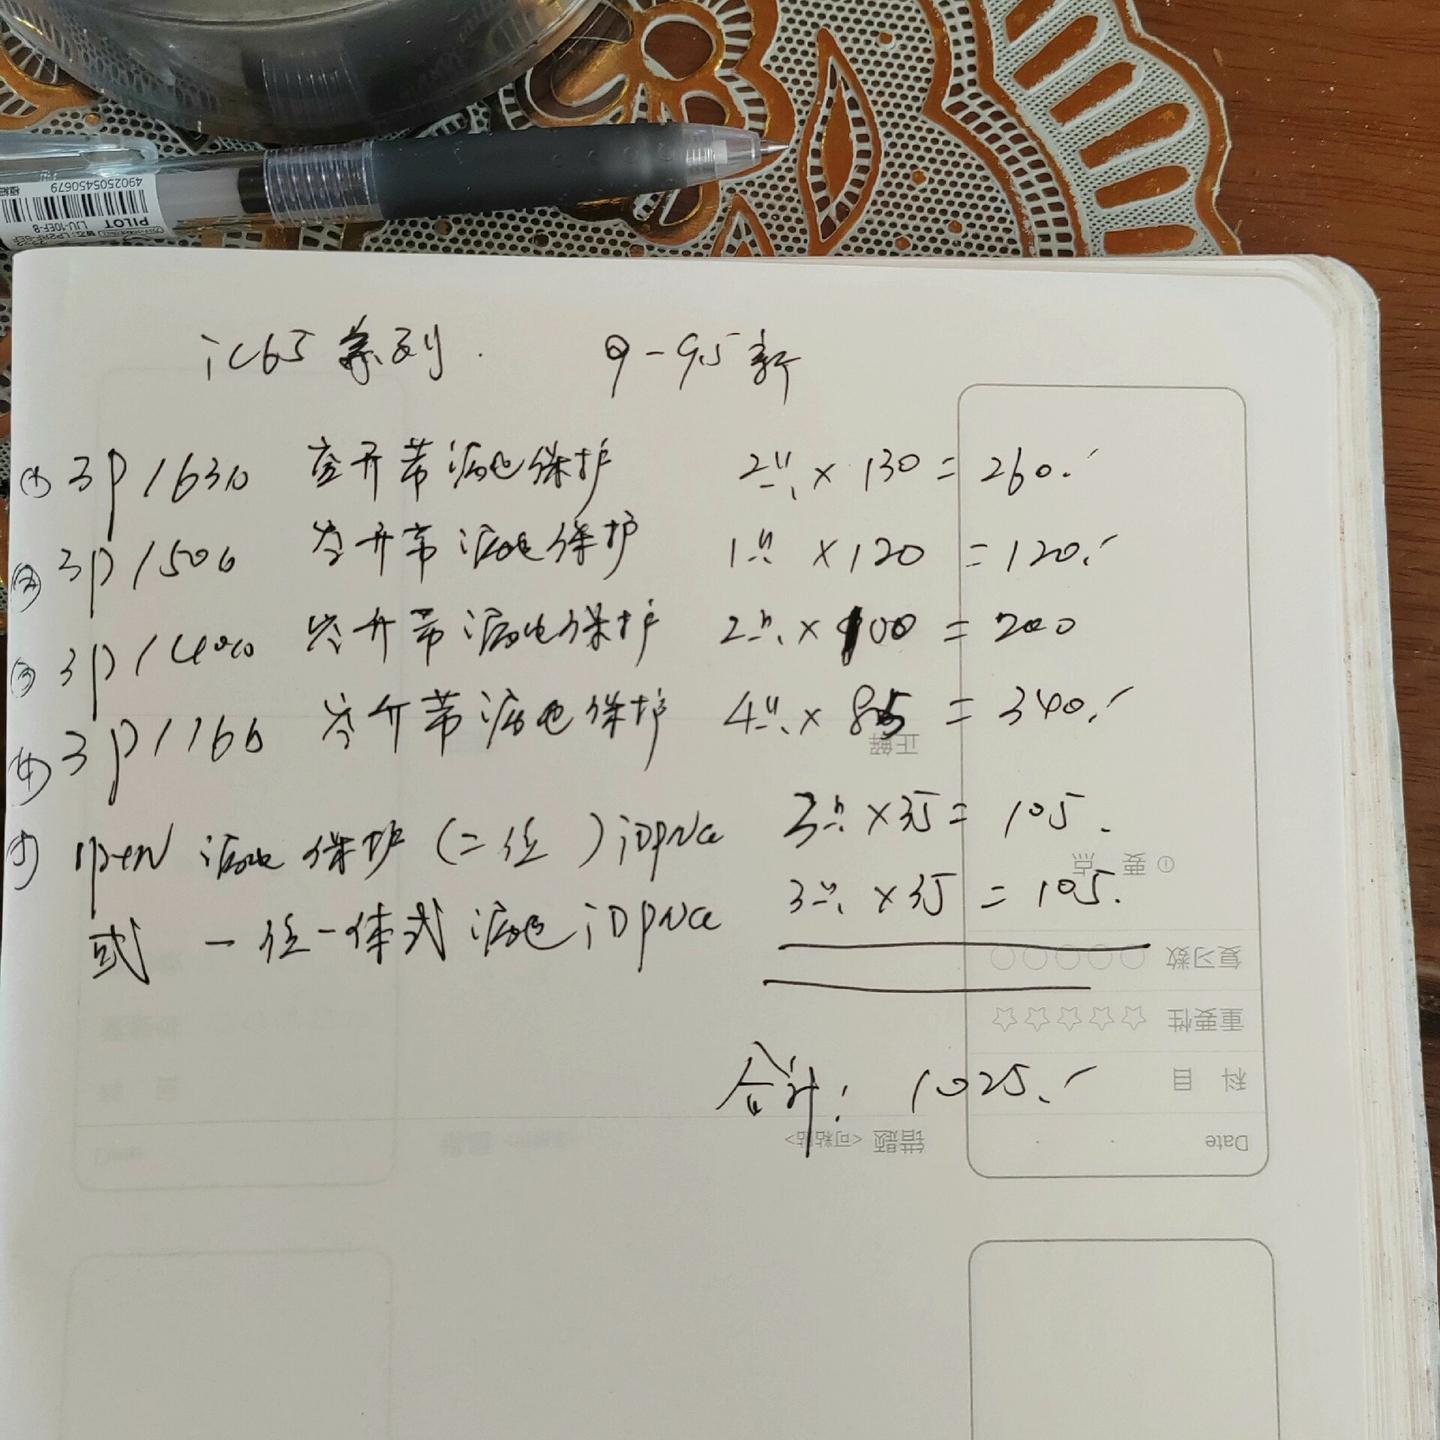 4902505450679
PILOT
LIU-10EF-B
iC65系列. 9-95新
① 3P/63A 空开带漏电保护 2只×130=260.-
② 3P/50A 空开带漏电保护 1只×120=120.-
③ 3P/40A 空开带漏电保护 2只×100=200
④ 3P/16A 空开带漏电保护 4只×85=340.-
正解
⑤ 1P+N 漏电保护(二位)iDPNa 3只×35=105.
①要点
或一位一体式漏电iDPNa 3只×35=105.
复习数
重要性
合计:1025.-
科目
错题<可粘贴>
Date